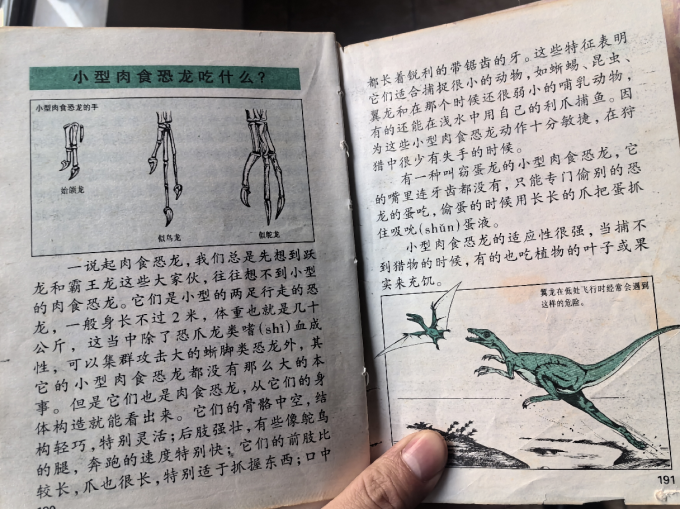 小型肉食恐龙吃什么？
小型肉食恐龙的手
始颌龙
似鸟龙
似鸵龙
一说起肉食恐龙，我们总是先想到跃
龙和霸王龙这些大家伙，往往想不到小型
的肉食恐龙。它们是小型的两足行走的恐
龙，一般身长不过2米，体重也就是几十
公斤，这当中除了恐爪龙类嗜(shì)血成
性，可以集群攻击大的蜥脚类恐龙外，其
它的小型肉食恐龙都没有那么大的本
事。但是它们也是肉食恐龙，从它们的身
体构造就能看出来。它们的骨骼中空，结
构轻巧，特别灵活；后肢强壮，有些像鸵鸟
的腿，奔跑的速度特别快；它们的前肢比
较长，爪也很长，特别适于抓握东西；口中
都长着锐利的带锯齿的牙。这些特征表明
它们适合捕捉很小的动物，如蜥蜴、昆虫、
翼龙和在那个时候还很弱小的哺乳动物，
有的还能在浅水中用自己的利爪捕鱼。因
为这些小型肉食恐龙动作十分敏捷，在狩
猎中很少有失手的时候。
有一种叫窃蛋龙的小型肉食恐龙，它
的嘴里连牙齿都没有，只能专门偷别的恐
龙的蛋吃，偷蛋的时候用长长的爪把蛋抓
住吸吮(shǔn)蛋液。
小型肉食恐龙的适应性很强，当捕不
到猎物的时候，有的也吃植物的叶子或果
实来充饥。
翼龙在低处飞行时经常会遇到
这样的危险。
191